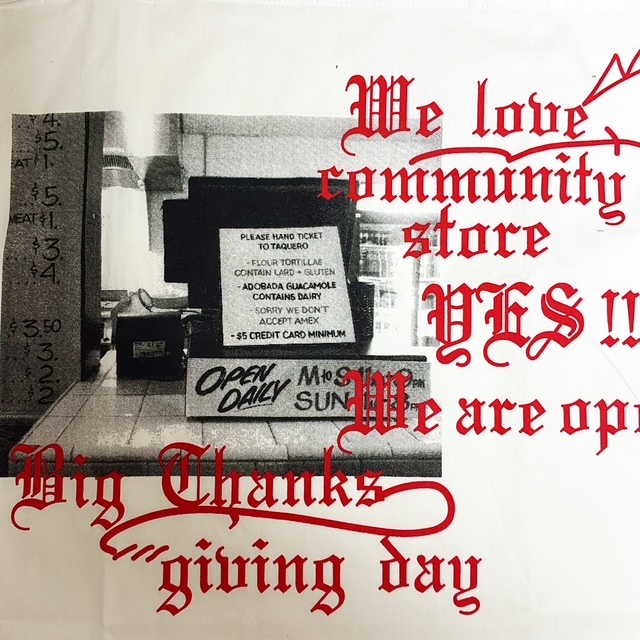 We love
community
store
YES!!
We are ope
Big Thanks
giving day
$4.
$5.
EAT $1.
$5.
MEAT $1.
$3.
$4.
$3.50
$3.
$2.
$2.
PLEASE HAND TICKET
TO TAQUERO
- FLOUR TORTILLAS
CONTAIN LARD + GLUTEN
- ADOBADA GUACAMOLE
CONTAINS DAIRY
- SORRY WE DON'T
ACCEPT AMEX
- $5 CREDIT CARD MINIMUM
OPEN
DAILY
M to S
SUN